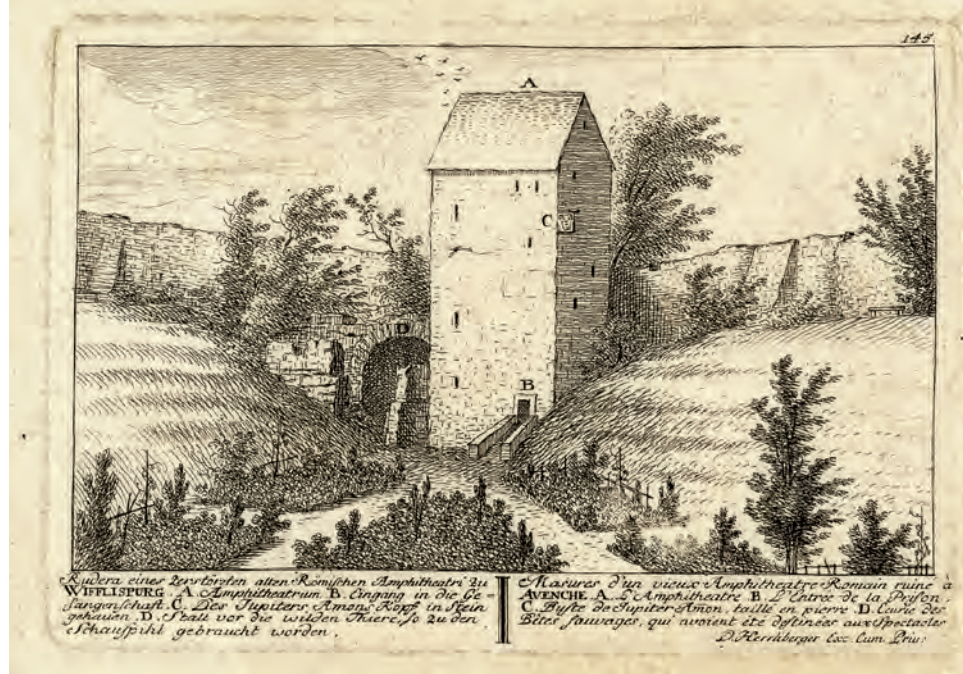 145.
A
C
D
B
Rudera eines Zerstörten alten Römischen Amphitheatri zu
WIFFLISPURG. A. Amphitheatrum B. Eingang in die Ge-
fangenschaft. C. Des Jupiters Amons Kopf in Stein
gehauen. D. Stall vor die wilden Thiere, so zu den
Schauspihl gebraucht worden.
Masures d'un vieux Amphitheatre Romain ruine à
AVENCHE. A. L'Amphitheatre B. L'Entrée de la Prison.
C. Buste de Jupiter Amon, taillé en pierre. D. Ecurie des
Bêtes sauvages, qui avoient été destinées aux Spectacles
D. Herrliberger Exc. Cum. Priv: